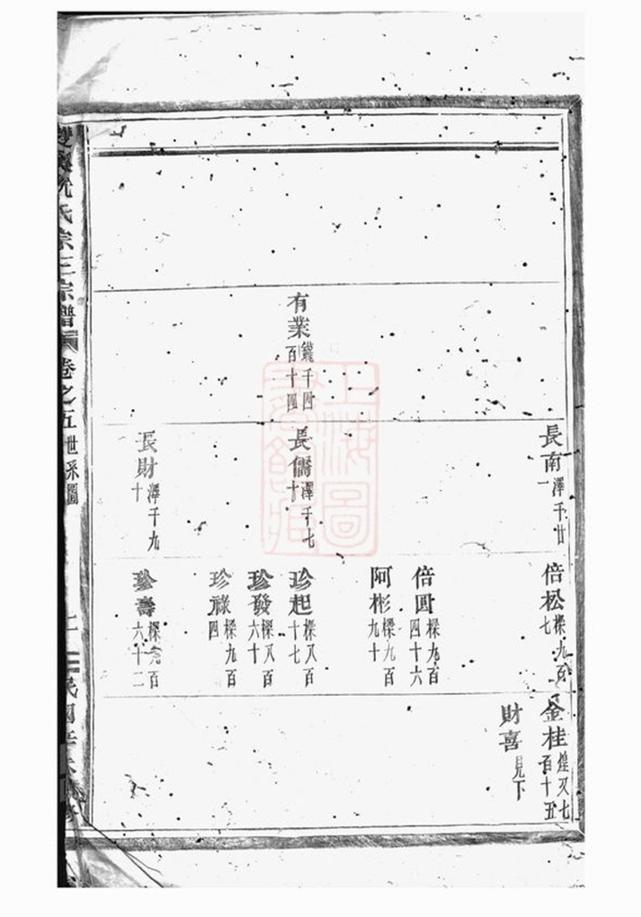 有業 鑨千四百十四
長南 澤千廿一
長儒 澤千七十
長財 澤千九十
倍松 樑九百七
倍圓 樑九百四十六
阿彬 樑九百九十
珍起 樑八百十七
珍發 樑八百六十
珍祿 樑九百四
珍壽 樑九百六十二
金桂 煌又七百十五
財喜 見下
氏宗三宗譜
卷之五世系圖
民國
上海圖書館藏